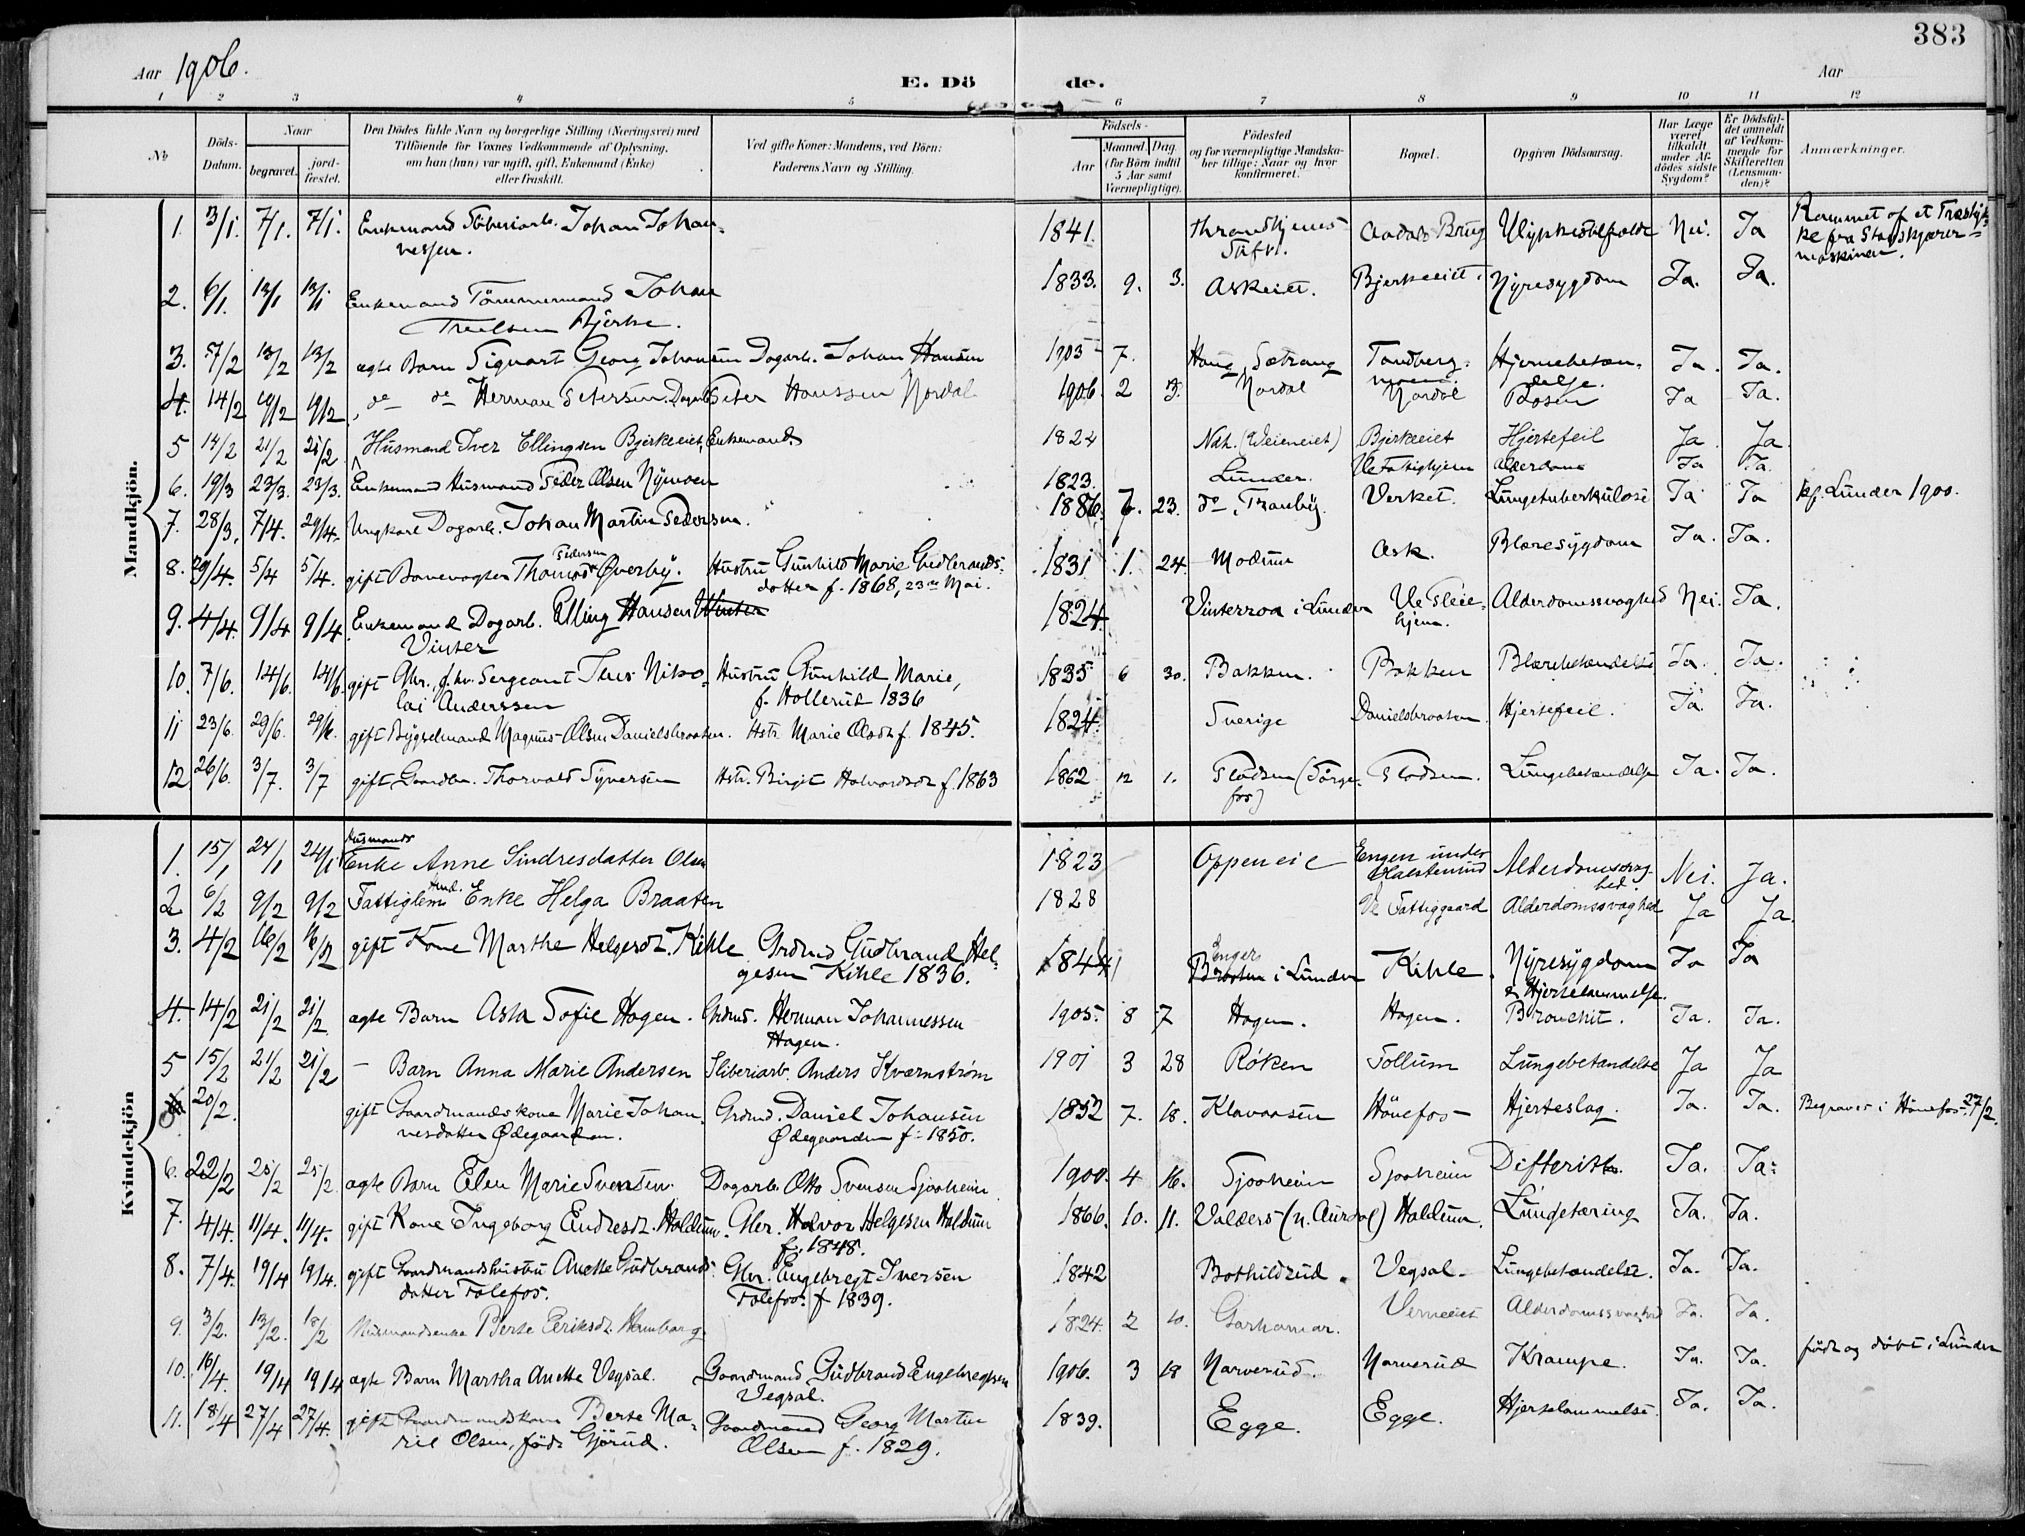 383
Aar 1906.
E. Dö de.
Aar
1 2 3 4 5 6 7 8 9 10 11 12
No
Döds-Datum.
Naar
begravet.
jord-fæstet.
Den Dödes fulde Navn og borgerlige Stilling (Næringsvei) med
Tilföiende for Voxnes Vedkommende af Oplysning,
om han (hun) var ugift, gift, Enkemand (Enke)
eller fraskilt.
Ved gifte Koner: Mandens, ved Börn:
Faderens Navn og Stilling.
Födsels-
Aar
Maaned. Dag.
(for Börn indtil
5 Aar samt
Værnepligtige).
Födested
og for værnepligtige Mandska-
ber tillige: Naar og hvor
konfirmeret.
Bopæl.
Opgiven Dödsaarsag.
Har Læge
været
tilkaldt
under Af-
dödes sidste
Sygdom?
Er Dödsfal-
det anmeldt
af Vedkom-
mende for
Skifteretten
(Lensman-
den)?
Anmærkninger.
Mandkjön.
1. 3/1. 7/1. 7/1. Enkemand Johan Johan-
nessen.
1841. Aadals Brug Ulykkestilfælde Nei. Ja Rammet af et Træstyk-
ke fra
maskinen.
2. 6/1. 13/1 13/1 Enkemand Tömmermand Johan
Truelsen Bjerke.
1833. 9. 3. Askeiet. Bjerkeeiet. Nyresygdom Ja. Ja.
3. 5/2 13/2 13/2 ægte Barn Sigvart Georg Johansen Dagarb. Johan Hansen
1905 7. Houg, Sætrang Tandberg- Hjernebetæn-
delse. Ja. Ja.
4. 14/2 19/2 19/2 do do Herman Petersen. Dagarb. Peter Hanssen Nordal
1906. 2 3. Nordal Nordal Rosen Ja Ja.
5 14/2 21/2 21/2 Husmand Iver Ellingsen Bjerkeeiet, Enkemand.
1824 Ndh. (Veieneiet) Bjerkeeiet Hjertefeil Ja Ja
6. 19/3 23/3. 23/3. Enkemand Husmand Peder Olsen Nymoen
1823. Lunder. Ve Fattighjem Alderdom Ja Ja.
7. 28/3. 7/4. 29/4. Ungkarl Dagarb. Johan Martin Pedersen.
1886. 7. 23. do, Tranby. Verket. Lungetuberkulose Ja Ja kf. Lunder 1900.
8. 29/4. 5/4 5/4. gift Banevogter Thomas Pedersen Øverby. Hustru Gunhild Marie Gudbrands-
datter f. 1868, 23de Mai.
1831 1. 24. Modum Ask. Blæresygdom Ja. Ja.
9. 4/4. 9/4 9/4 Enkemand Dagarb. Elling Hansen Vinter
Vinter
1824. Vinterroa i Lunder Ve Pleie-
hjem. Alderdomssvaghed Nei. Ja.
10. 7/6. 14/6. 14/6. gift Gbr., f.hv. Sergeant Jens Niko-
lai Anderssen Hustru Gunhild Marie,
f. Hollerud 1836
1835 6 30. Bakken. Bakken Blærebetændelse Ja. Ja.
11 23/6. 29/6. 29/6. gift Bygselmand Magnus Olsen Danielsbraaten. Hstr. Marie Olsdt f. 1845.
1824. Sverige Danielsbraaten. Hjertefeil. Ja. Ja.
12 26/6. 3/7. 3/7 gift Gaardbr. Thorvald Syversen Hstr. Birgit Halvordsdt f. 1863
1862 12 1. Flodsen. Lungebetændelse Ja. Ja.
Kvindekjön
1. 15/1 24/1 24/1 Husmands
Enke Anne Sindresdatter Olsen
1823 Oppeneie Engen under
Alderdomssvag-
hed. Nei. Ja.
2 6/2 9/2 9/2 Fattiglem Enke Helga Braaten
1828 Ve Fattiggaard Alderdomssvaghed Ja Ja.
3. 4/2 16/2 16/2 gift Kone Marthe Helgesdt. Kihle Grdmd Gudbrand Hel-
gesen Kihle 1836.
1844 Enger i Lunder Kihle. Nyresygdom
& Hjertelammelse. Ja Ja
4. 14/2 21/2 21/2 ægte Barn Asta Sofie Hagen. Grdmd. Herman Johannessen
Hagen.
1905. 8 7 Hagen. Hagen. Bronchit. Ja. Ja.
5 15/2 21/2 21/2 – Barn Anna Marie Andersen Sliberiarb. Anders Kværnstrøm
1901 3 28 Røken Follum Lungebetændelse Ja Ja
20/2. gift Gaardmandskone Marie Johan-
nesdatter Ødegaarden. Grdmd. Daniel Johansen
Ødegaarden f. 1850.
1852 7. 18. Klavaasen Hönefos Hjerteslag. Ja. Ja. Begravet i Hönefos 27/2.
6. 22/2 25/2 25/2 ægte Barn Elen Marie Svensen. Dagarb. Otto Svensen Sjaaheim.
1900. 4 16. Sjaaheim Sjaaheim Difterit. Ja. Ja.
7. 4/4. 11/4. 11/4. gift Kone Ingeborg Endresdt. Haldum. Gbr. Halvor Helgesen Haldum
f. 1848.
1866. 10. 11. Valders (n. Aurdal) Haldum. Lungetæring Ja. Ja.
8. 7/4. 19/4 19/4. gift Gaardmandshustru Anette Gudbrands-
datter Falefos. Gbr. Engebregt Iversen
Falefos. f 1839.
1842 Bothildrud. Vegsal. Lungebetændelse. Ja. Ja.
9. 3/2. 13/2. 18/2 Husmandsenke Berte Eriksdt.
1824. 2 10. Garhamar. Verneeiet Alderdomssvaghed Ja. Ja.
10. 16/4. 19/4 19/4 ægte Barn Martha Anette Vegsal. Gaardmand Gudbrand Engebregtsen
Vegsal.
1906. 3 18 Narverud. Narverud Krampe. Ja. Ja. födt og döbt i Lunder
11. 18/4 27/4 27/4. gift Gaardmandskone Berte Ma-
rie Olsen, född Gjörud. Gaardmand Georg Martin
Olsen f. 1829.
1839. Egge. Egge. Hjertelammelse. Ja. Ja.